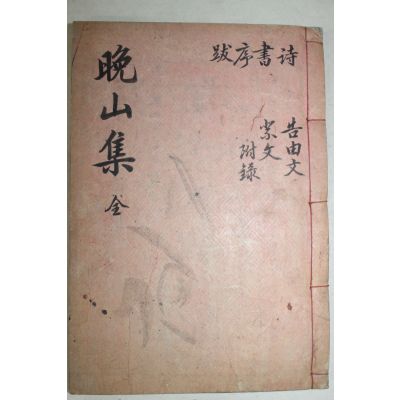 詩書序跋
告由文
祭文
附錄
晚山集 全